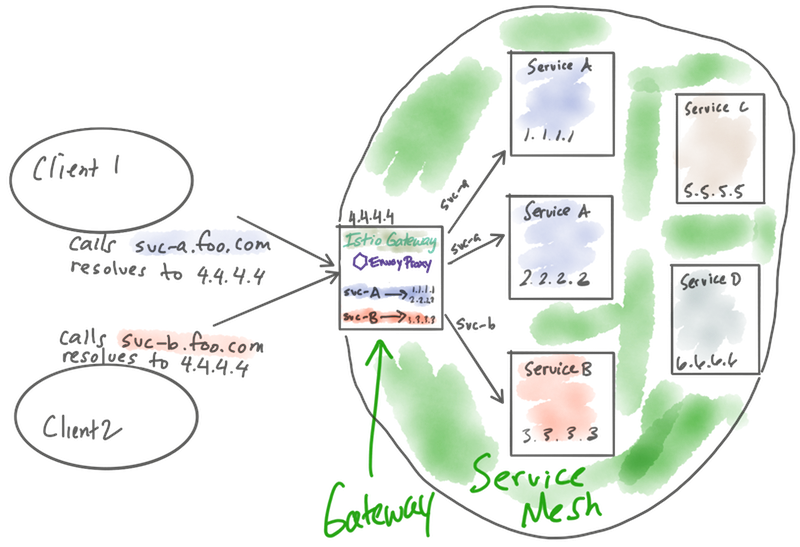 Client 1
calls svc-a.foo.com
resolves to 4.4.4.4
calls svc-b.foo.com
resolves to 4.4.4.4
Client2
4.4.4.4
Istio Gateway
Envoy Proxy
svc-A → 1.1.1.1
2.2.2.2
svc-B → 3.3.3.3
svc-a
svc-a
svc-b
Service A
1.1.1.1
Service A
2.2.2.2
Service B
3.3.3.3
Service C
5.5.5.5
Service D
6.6.6.6
Gateway
Service
Mesh